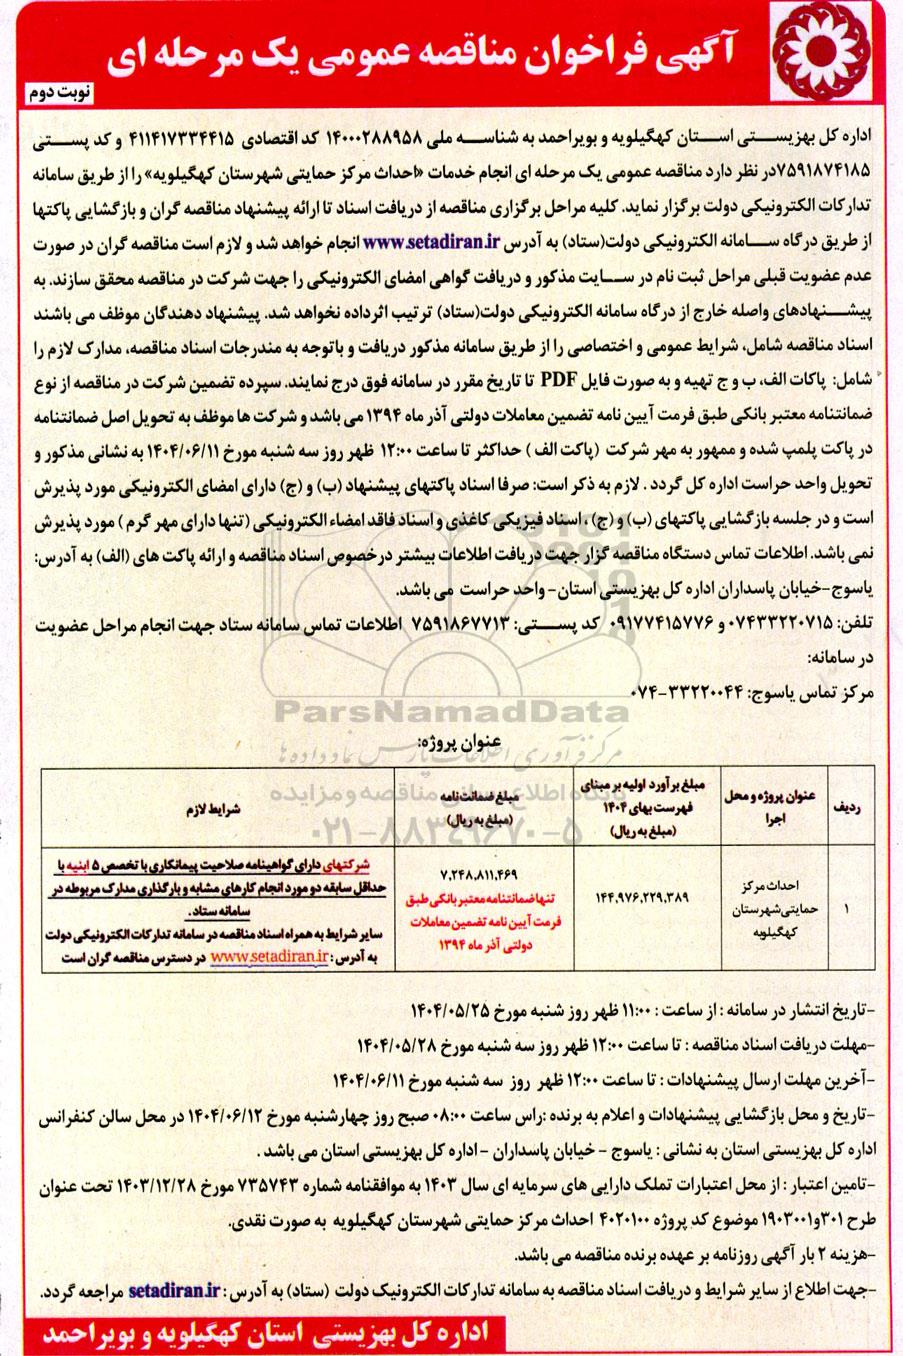 آگهی فراخوان مناقصه عمومی یک مرحله ای
نوبت دوم
اداره کل بهزیستی استان کهگیلویه و بویراحمد به شناسه ملی ۱۴۰۰۰۲۸۸۹۵۸ کد اقتصادی ۴۱۱۴۱۷۳۳۴۴۱۵ و کد پستی
۷۵۹۱۸۷۴۱۸۵در نظر دارد مناقصه عمومی یک مرحله ای انجام خدمات «احداث مرکز حمایتی شهرستان کهگیلویه» را از طریق سامانه
تدارکات الکترونیکی دولت برگزار نماید. کلیه مراحل برگزاری مناقصه از دریافت اسناد تا ارائه پیشنهاد مناقصه گران و بازگشایی پاکتها
از طریق درگاه سامانه الکترونیکی دولت(ستاد) به آدرس www.setadiran.ir انجام خواهد شد و لازم است مناقصه گران در صورت
عدم عضویت قبلی مراحل ثبت نام در سایت مذکور و دریافت گواهی امضای الکترونیکی را جهت شرکت در مناقصه محقق سازند. به
پیشنهادهای واصله خارج از درگاه سامانه الکترونیکی دولت(ستاد) ترتیب اثرداده نخواهد شد. پیشنهاد دهندگان موظف می باشند
اسناد مناقصه شامل، شرایط عمومی و اختصاصی را از طریق سامانه مذکور دریافت و باتوجه به مندرجات اسناد مناقصه، مدارک لازم را
شامل: پاکات الف، ب و ج تهیه و به صورت فایل PDF تا تاریخ مقرر در سامانه فوق درج نمایند. سپرده تضمین شرکت در مناقصه از نوع
ضمانتنامه معتبر بانکی طبق فرمت آیین نامه تضمین معاملات دولتی آذر ماه ۱۳۹۴ می باشد و شرکت ها موظف به تحویل اصل ضمانتنامه
در پاکت پلمپ شده و ممهور به مهر شرکت (پاکت الف ) حداکثر تا ساعت ۱۲:۰۰ ظهر روز سه شنبه مورخ ۱۴۰۴/۰۶/۱۱ به نشانی مذکور و
تحویل واحد حراست اداره کل گردد . لازم به ذکر است: صرفا اسناد پاکتهای پیشنهاد (ب) و (ج) دارای امضای الکترونیکی مورد پذیرش
است و در جلسه بازگشایی پاکتهای (ب) و (ج) ، اسناد فیزیکی کاغذی و اسناد فاقد امضاء الکترونیکی (تنها دارای مهر گرم ) مورد پذیرش
نمی باشد. اطلاعات تماس دستگاه مناقصه گزار جهت دریافت اطلاعات بیشتر درخصوص اسناد مناقصه و ارائه پاکت های (الف) به آدرس:
یاسوج-خیابان پاسداران اداره کل بهزیستی استان- واحد حراست می باشد.
تلفن: ۰۷۴۳۳۲۲۰۷۱۵ و ۰۹۱۷۷۴۱۵۷۷۶ کد پستی: ۷۵۹۱۸۶۷۷۱۳ اطلاعات تماس سامانه ستاد جهت انجام مراحل عضویت
در سامانه:
مرکز تماس یاسوج: ۳۳۲۲۰۰۴۴-۰۷۴
ParsNamadData
عنوان پروژه:
مرکز فرآوری اطلاعات پارس نماد داده ها
پایگاه اطلاع رسانی مناقصه و مزایده
۰۲۱-۸۸۳۴۹۶۷۰-۵
ردیف
عنوان پروژه و محل اجرا
مبلغ برآورد اولیه بر مبنای فهرست بهای ۱۴۰۴ (مبلغ به ریال)
مبلغ ضمانت نامه (مبلغ به ریال)
شرایط لازم
۱
احداث مرکز حمایتی شهرستان کهگیلویه
۱۴۴,۹۷۶,۲۲۹,۳۸۹
۷,۲۴۸,۸۱۱,۴۶۹
تنها ضمانتنامه معتبر بانکی طبق
فرمت آیین نامه تضمین معاملات
دولتی آذر ماه ۱۳۹۴
شرکتهای دارای گواهینامه صلاحیت پیمانکاری با تخصص ۵ ابنیه با
حداقل سابقه دو مورد انجام کارهای مشابه و بارگذاری مدارک مربوطه در
سامانه ستاد.
سایر شرایط به همراه اسناد مناقصه در سامانه تدارکات الکترونیکی دولت
به آدرس : www.setadiran.ir در دسترس مناقصه گران است
-تاریخ انتشار در سامانه : از ساعت : ۱۱:۰۰ ظهر روز شنبه مورخ ۱۴۰۴/۰۵/۲۵
-مهلت دریافت اسناد مناقصه : تا ساعت ۱۲:۰۰ ظهر روز سه شنبه مورخ ۱۴۰۴/۰۵/۲۸
-آخرین مهلت ارسال پیشنهادات : تا ساعت ۱۲:۰۰ ظهر روز سه شنبه مورخ ۱۴۰۴/۰۶/۱۱
-تاریخ و محل بازگشایی پیشنهادات و اعلام به برنده :راس ساعت ۰۸:۰۰ صبح روز چهارشنبه مورخ ۱۴۰۴/۰۶/۱۲ در محل سالن کنفرانس
اداره کل بهزیستی استان به نشانی : یاسوج - خیابان پاسداران -اداره کل بهزیستی استان می باشد .
-تامین اعتبار : از محل اعتبارات تملک دارایی های سرمایه ای سال ۱۴۰۳ به موافقنامه شماره ۷۳۵۷۴۳ مورخ ۱۴۰۳/۱۲/۲۸ تحت عنوان
طرح ۳۰۱و۱۹۰۳۰۰۱ موضوع کد پروژه ۴۰۲۰۱۰۰ احداث مرکز حمایتی شهرستان کهگیلویه به صورت نقدی.
-هزینه ۲ بار آگهی روزنامه بر عهده برنده مناقصه می باشد.
-جهت اطلاع از سایر شرایط و دریافت اسناد مناقصه به سامانه تدارکات الکترونیک دولت (ستاد) به آدرس : setadiran.ir مراجعه گردد.
اداره کل بهزیستی استان کهگیلویه و بویراحمد